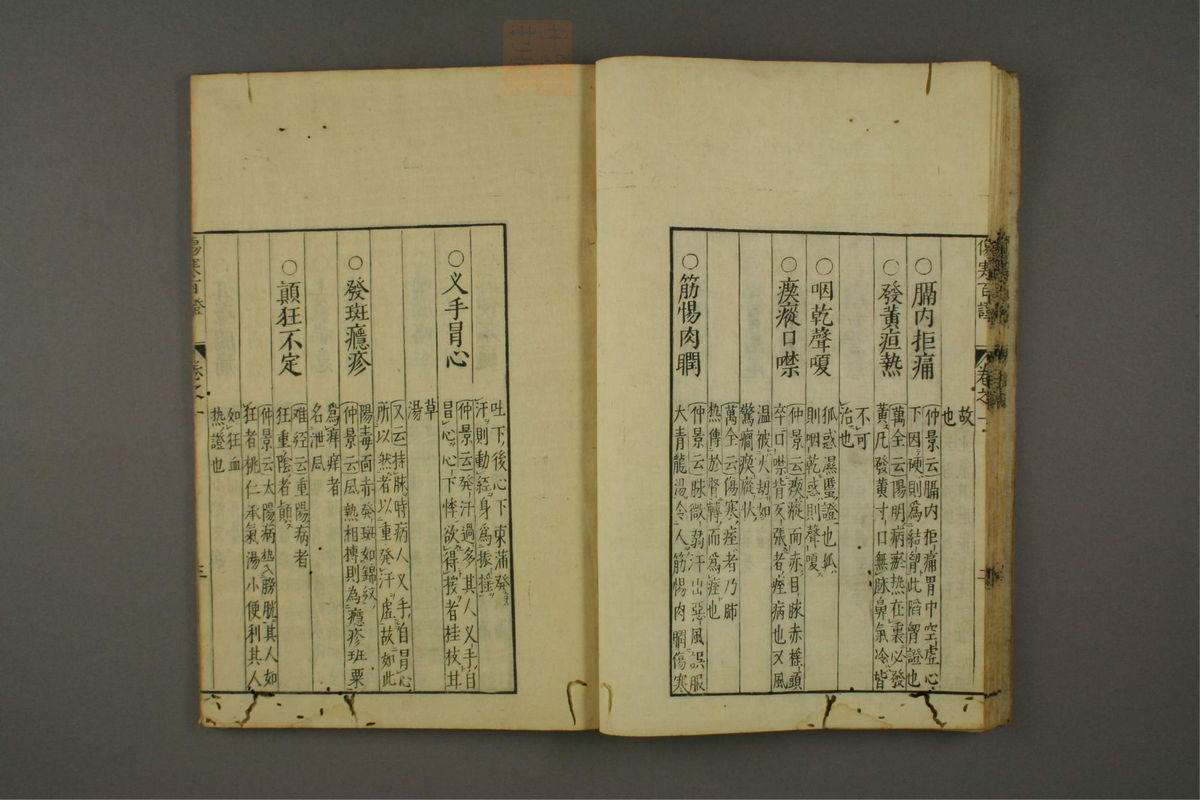 傷寒百證
卷之一
故
也
○膈内拒痛
仲景云膈内拒痛胃中空虛心
下因硬則為結胷此陷胷證也
○發黃疸熱
萬全云陽明病瘀热在裏必發
黃凡發黃寸口無脉鼻氣冷皆
不可
治也
○咽乾聲嗄
狐惑濕䘌證也狐
則咽乾惑則聲嗄
○瘈瘲口噤
仲景云瘈瘲面赤目脉赤揺頭
卒口噤背反張者痓病也又風
温被火刼如
驚癎瘈瘲状
萬全云傷寒痓者乃肺
热傳於腎轉而為痓也
○筋惕肉瞤
仲景云脉微弱汗出惡風誤服
大青龍湯令人筋惕肉瞤傷寒
吐下後心下
汗則動經身為振揺
○义手冐心
仲景云發汗過多其人义手自
冐心心下悸欲得按者桂枝甘
草
湯
又云持脉時病人义手自冐心
所以然者以重發汗虛故如此
○發斑癮疹
陽毒面赤發斑如錦紋
仲景云风熱相摶則為癮疹班粟
為痒痒者
名泄风
○顛狂不定
难經云重陽病者
狂重陰者顛
仲景云太陽病热入膀胱其人如
狂者桃仁承氣湯小便利其人
如狂血
热證也
傷寒百證
卷之一
三